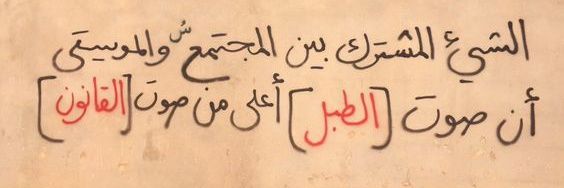 الشيئ المشترك بين المجتمع والموسيقى
أن صوت [الطبل] أعلى من صوت [القانون]